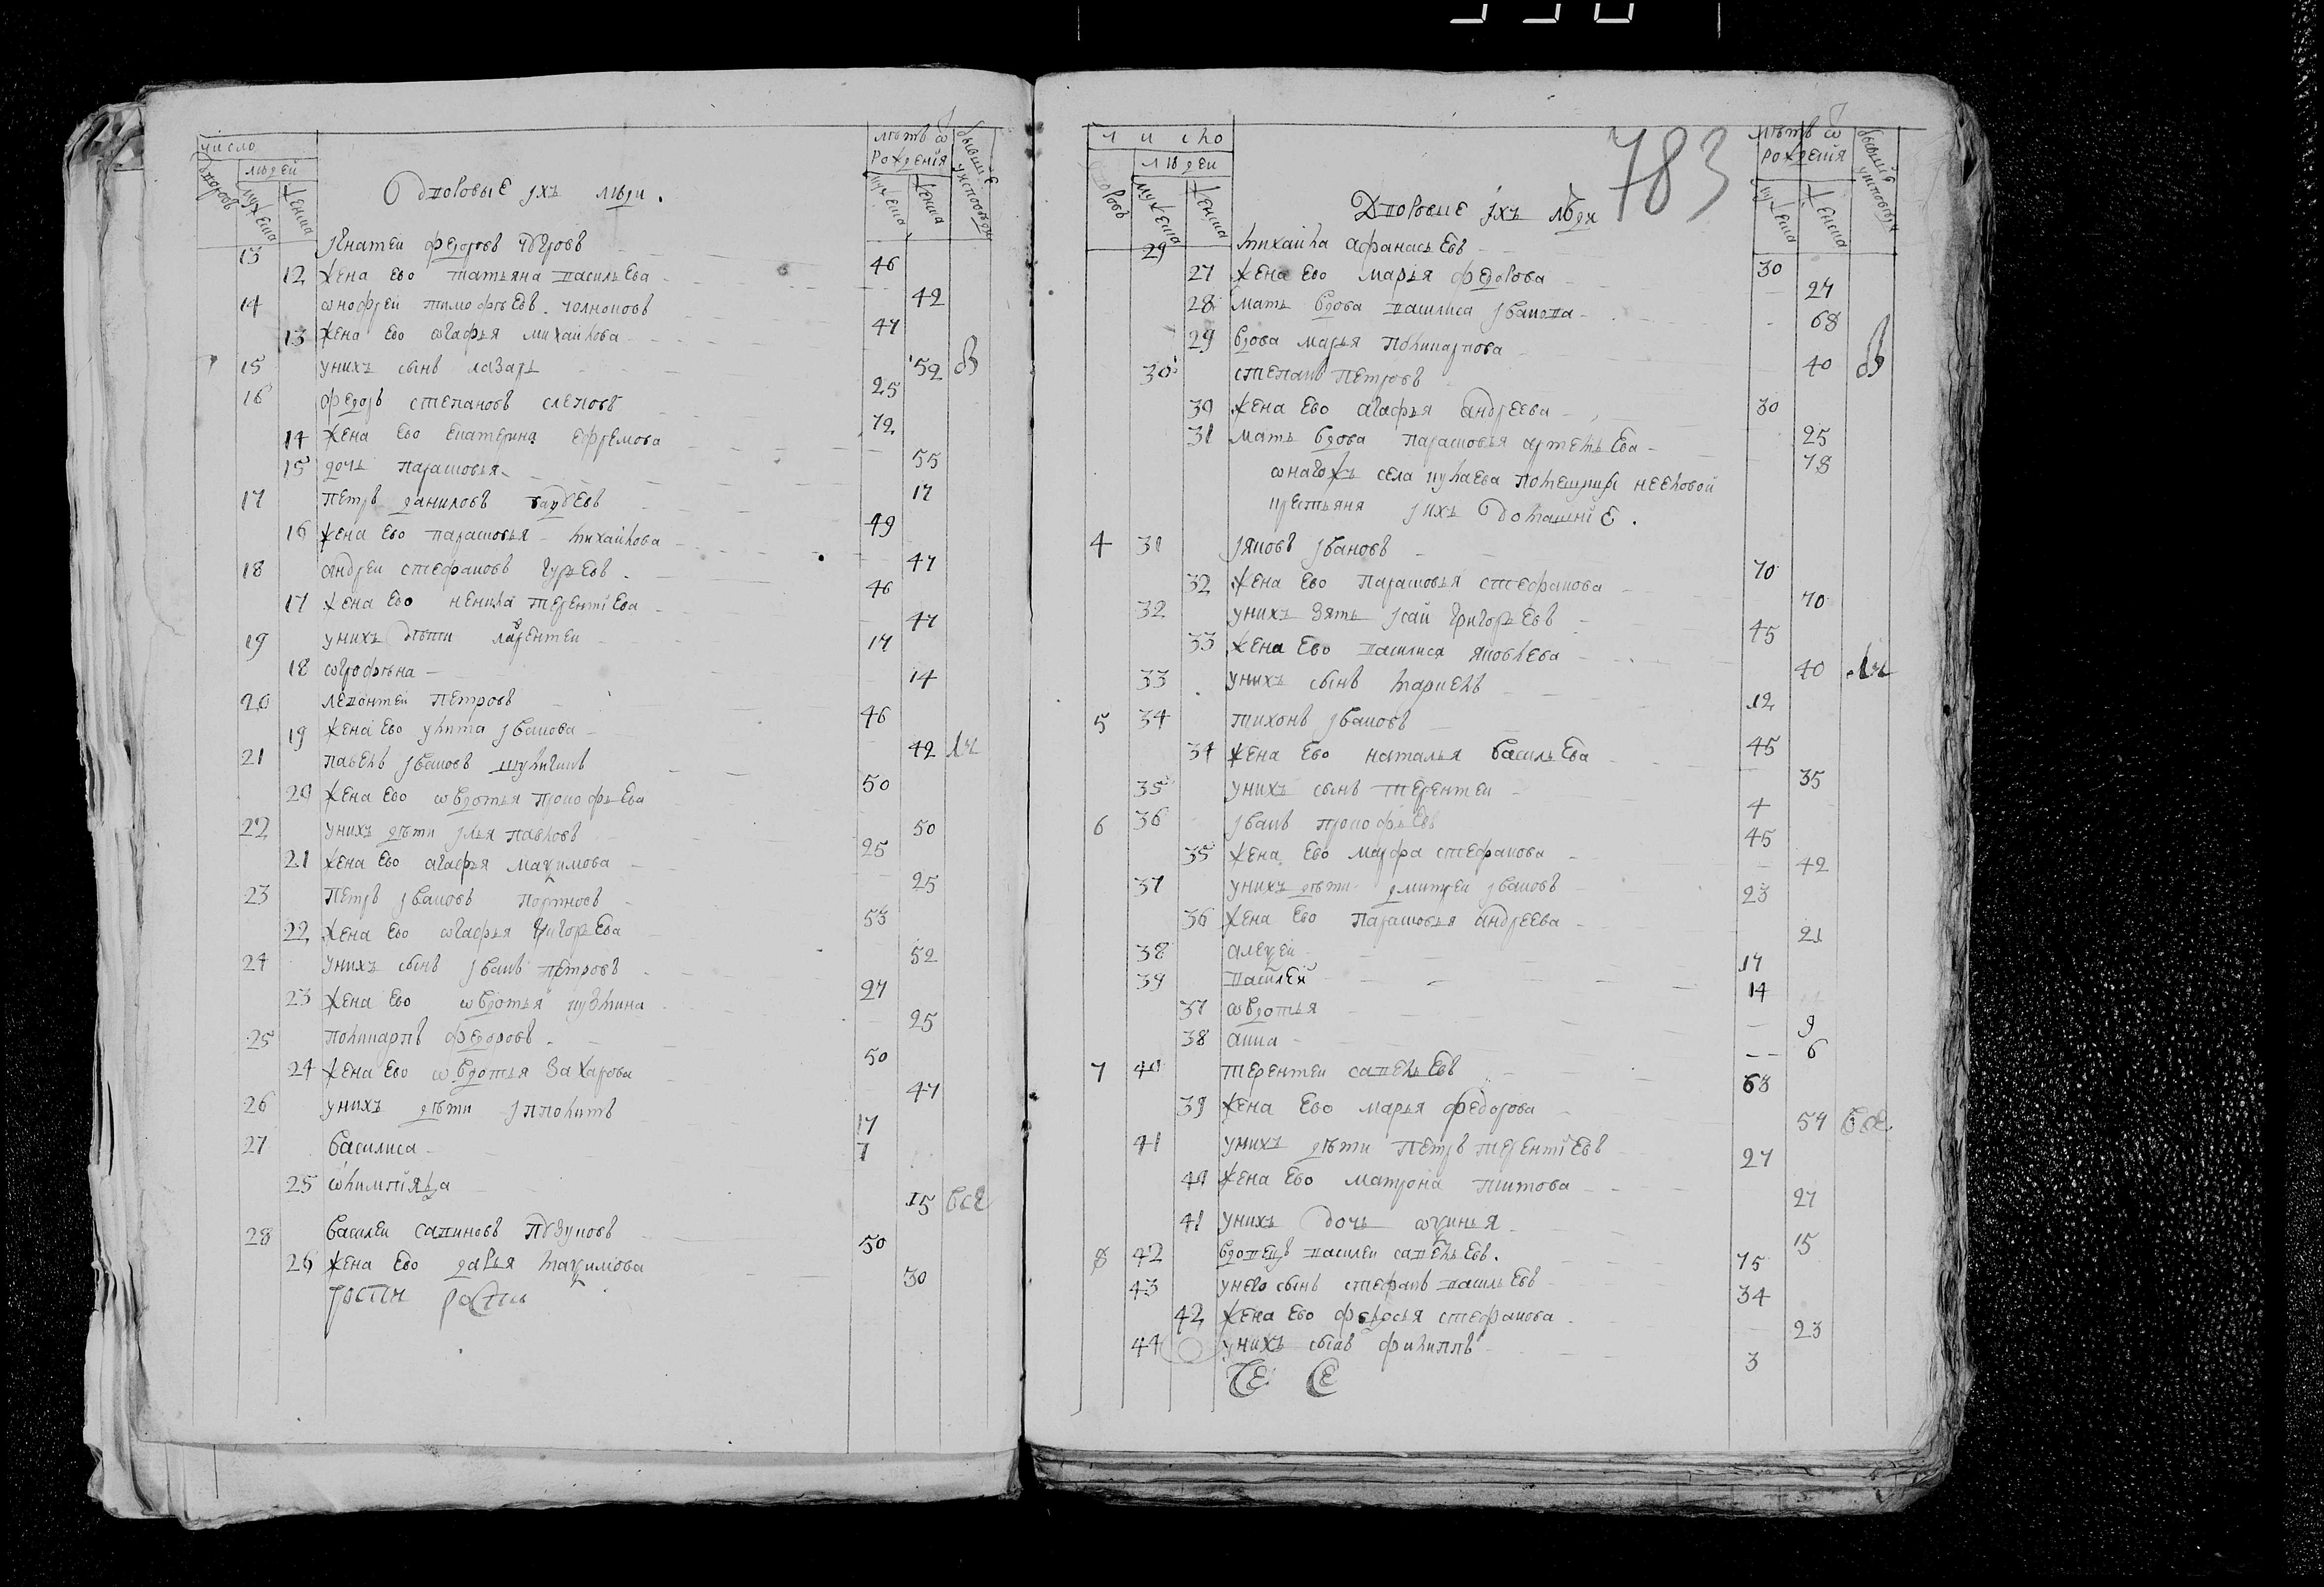 число
людей
дворовъ
мужеска
женска
дворовые ихъ люди.
лѣтъ ѿ рожденiя
мужеска
женска
бывшiе у исповѣди
13 Игнатей федоровъ
12 жена ево татьяна васильева 46
14 онофрей тимофѣевъ 42
13 жена ево агафья михайлова 47
15 у нихъ сынъ лазарь 52
16 федоръ степановъ слеповъ 25
14 жена ево екатерина ефремова 72
15 дочь парасковья 55
17 петръ даниловъ 17
16 жена ево парасковья михайлова 49
18 андрей стефановъ гурьевъ 47
17 жена ево ненила терентiева 46
19 у нихъ дѣти лаврентей 47
17
18 огрофѣна 14
20 леонтей петровъ
19 жена ево улита иванова 46
21 павелъ ивановъ шулигинъ 42
20 жена ево овдотья прокофьева 50
22 у нихъ дѣти илья павловъ 50
21 жена ево агафья маѯимова 25
23 петръ ивановъ портновъ 25
22 жена ево огафья григорьева 53
24 у нихъ сынъ иванъ петровъ 52
23 жена ево овдотья кузмина 27
25 поликарпъ федоровъ 25
24 жена ево овдотья захарова 50
26 у нихъ дѣти ипполитъ 47
17
27 василиса 7
25 олимпiяда
15 все
28 василей савиновъ
26 жена ево дарья маѯимова 50
30
число
783
людей
дворовъ
мужеска
женска
Дворовые ихъ люди
лѣтъ ѿ рожденiя
мужеска
женска
бывшiе у исповѣди
29 михайла афанасьевъ
27 жена ево марья федорова 30
28 мать вдова василиса иванова 27
29 вдова марья поликарпова 68
30 степанъ петровъ 40
30 жена ево агафья андреева 30
31 мать вдова парасковья артемьева 25
78
онагожъ села
крестьяня ихъ домашнiе.
4 31 яковъ ивановъ
32 жена ево парасковья стефанова 70
32 у нихъ зять исай григорьевъ 70
33 жена ево василиса яковлева 45
33 у нихъ сынъ маркелъ 40
5 34 тихонъ ивановъ 12
34 жена ево наталья васильева 45
35 у нихъ сынъ терентей 35
6 36 иванъ прокофьевъ 4
35 жена ево марфа стефанова 45
42
37 у нихъ дѣти дмитрей ивановъ 23
36 жена ево парасковья андреева
38 алеѯей 21
39 василей 17
37 овдотья 14
38 анна 9
6
7 40 терентей савельевъ 68
39 жена ево марья федорова
57 все
41 у нихъ дѣти петръ терентiевъ 27
40 жена ево матрона титова
27
41 у нихъ дочь оѯинья
8 42 вдовецъ василей савельевъ. 15
75
43 у него сынъ стефанъ васильевъ 34
42 жена ево федосья стефанова 23
44 у нихъ сынъ филиппъ 3